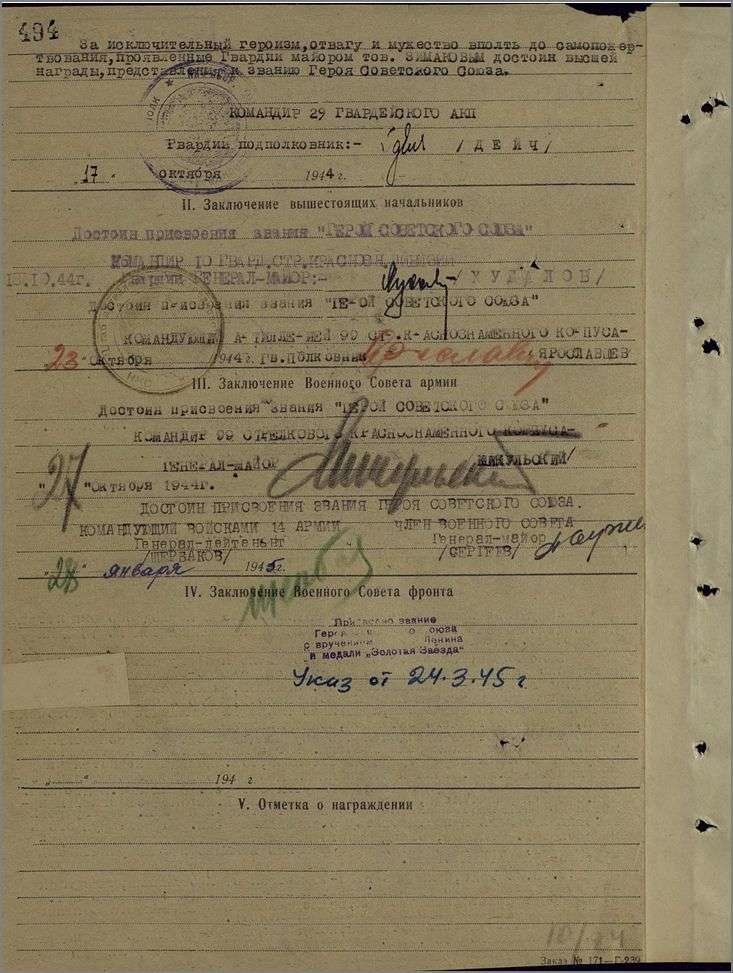 494
За исключительный героизм, отвагу и мужество вполть до самопожер-
твования, проявленные Гвардии майором тов. ЗИМАКОВЫМ достоин высшей
награды, представления к званию Героя Советского Союза.
КОМАНДИР 29 ГВАРДЕЙСКОГО АКП
Гвардии подполковник:- /ДЕЙЧ/
17 октября 1944 г.
II. Заключение вышестоящих начальников
Достоин присвоения звания "ГЕРОЙ СОВЕТСКОГО СОЮЗА"
КОМАНДИР 10 ГВАРД.СТР.КРАСНОЗН.ДИВИЗИИ
.10.44г. Гвардии ГЕНЕРАЛ-МАЙОР:- /ХУДАЛОВ/
Достоин присвоения звания "ГЕРОЙ СОВЕТСКОГО СОЮЗА"
КОМАНДУЮЩИЙ А ТИЛЛЕ ИЕЙ 99 СТР.К АСНОЗНАМЕННОГО КО ПУСА-
23 Октября 1944г Гв.Полковник ЯРОСЛАВЦЕВ
III. Заключение Военного Совета армии
Достоин присвоения звания "ГЕРОЙ СОВЕТСКОГО СОЮЗА"
КОМАНДИР 99 СТРЕЛКОВОГО КРАСНОЗНАМЕННОГО КОРПУСА-
ГЕНЕРАЛ-МАЙОР МИКУЛЬСКИЙ/
"27"Октября 1944г.
ДОСТОИН ПРИСВОЕНИЯ ЗВАНИЯ ГЕРОЯ СОВЕТСКОГО СОЮЗА.
КОМАНДУЮЩИЙ ВОЙСКАМИ 14 АРМИИ ЧЛЕН ВОЕННОГО СОВЕТА
Генерал-лейтенант Генерал-майор
/ЩЕРБАКОВ/ /СЕРГЕЕВ/
"28" января 1945 г.
IV. Заключение Военного Совета фронта
Присвоено звание
Геро о оюза
с вручением Ленина
и медали „Золотая Звезда"
Указ от 24.3.45 г
„ " 194 г
V. Отметка о награждении
Заказ № 171—Г-239